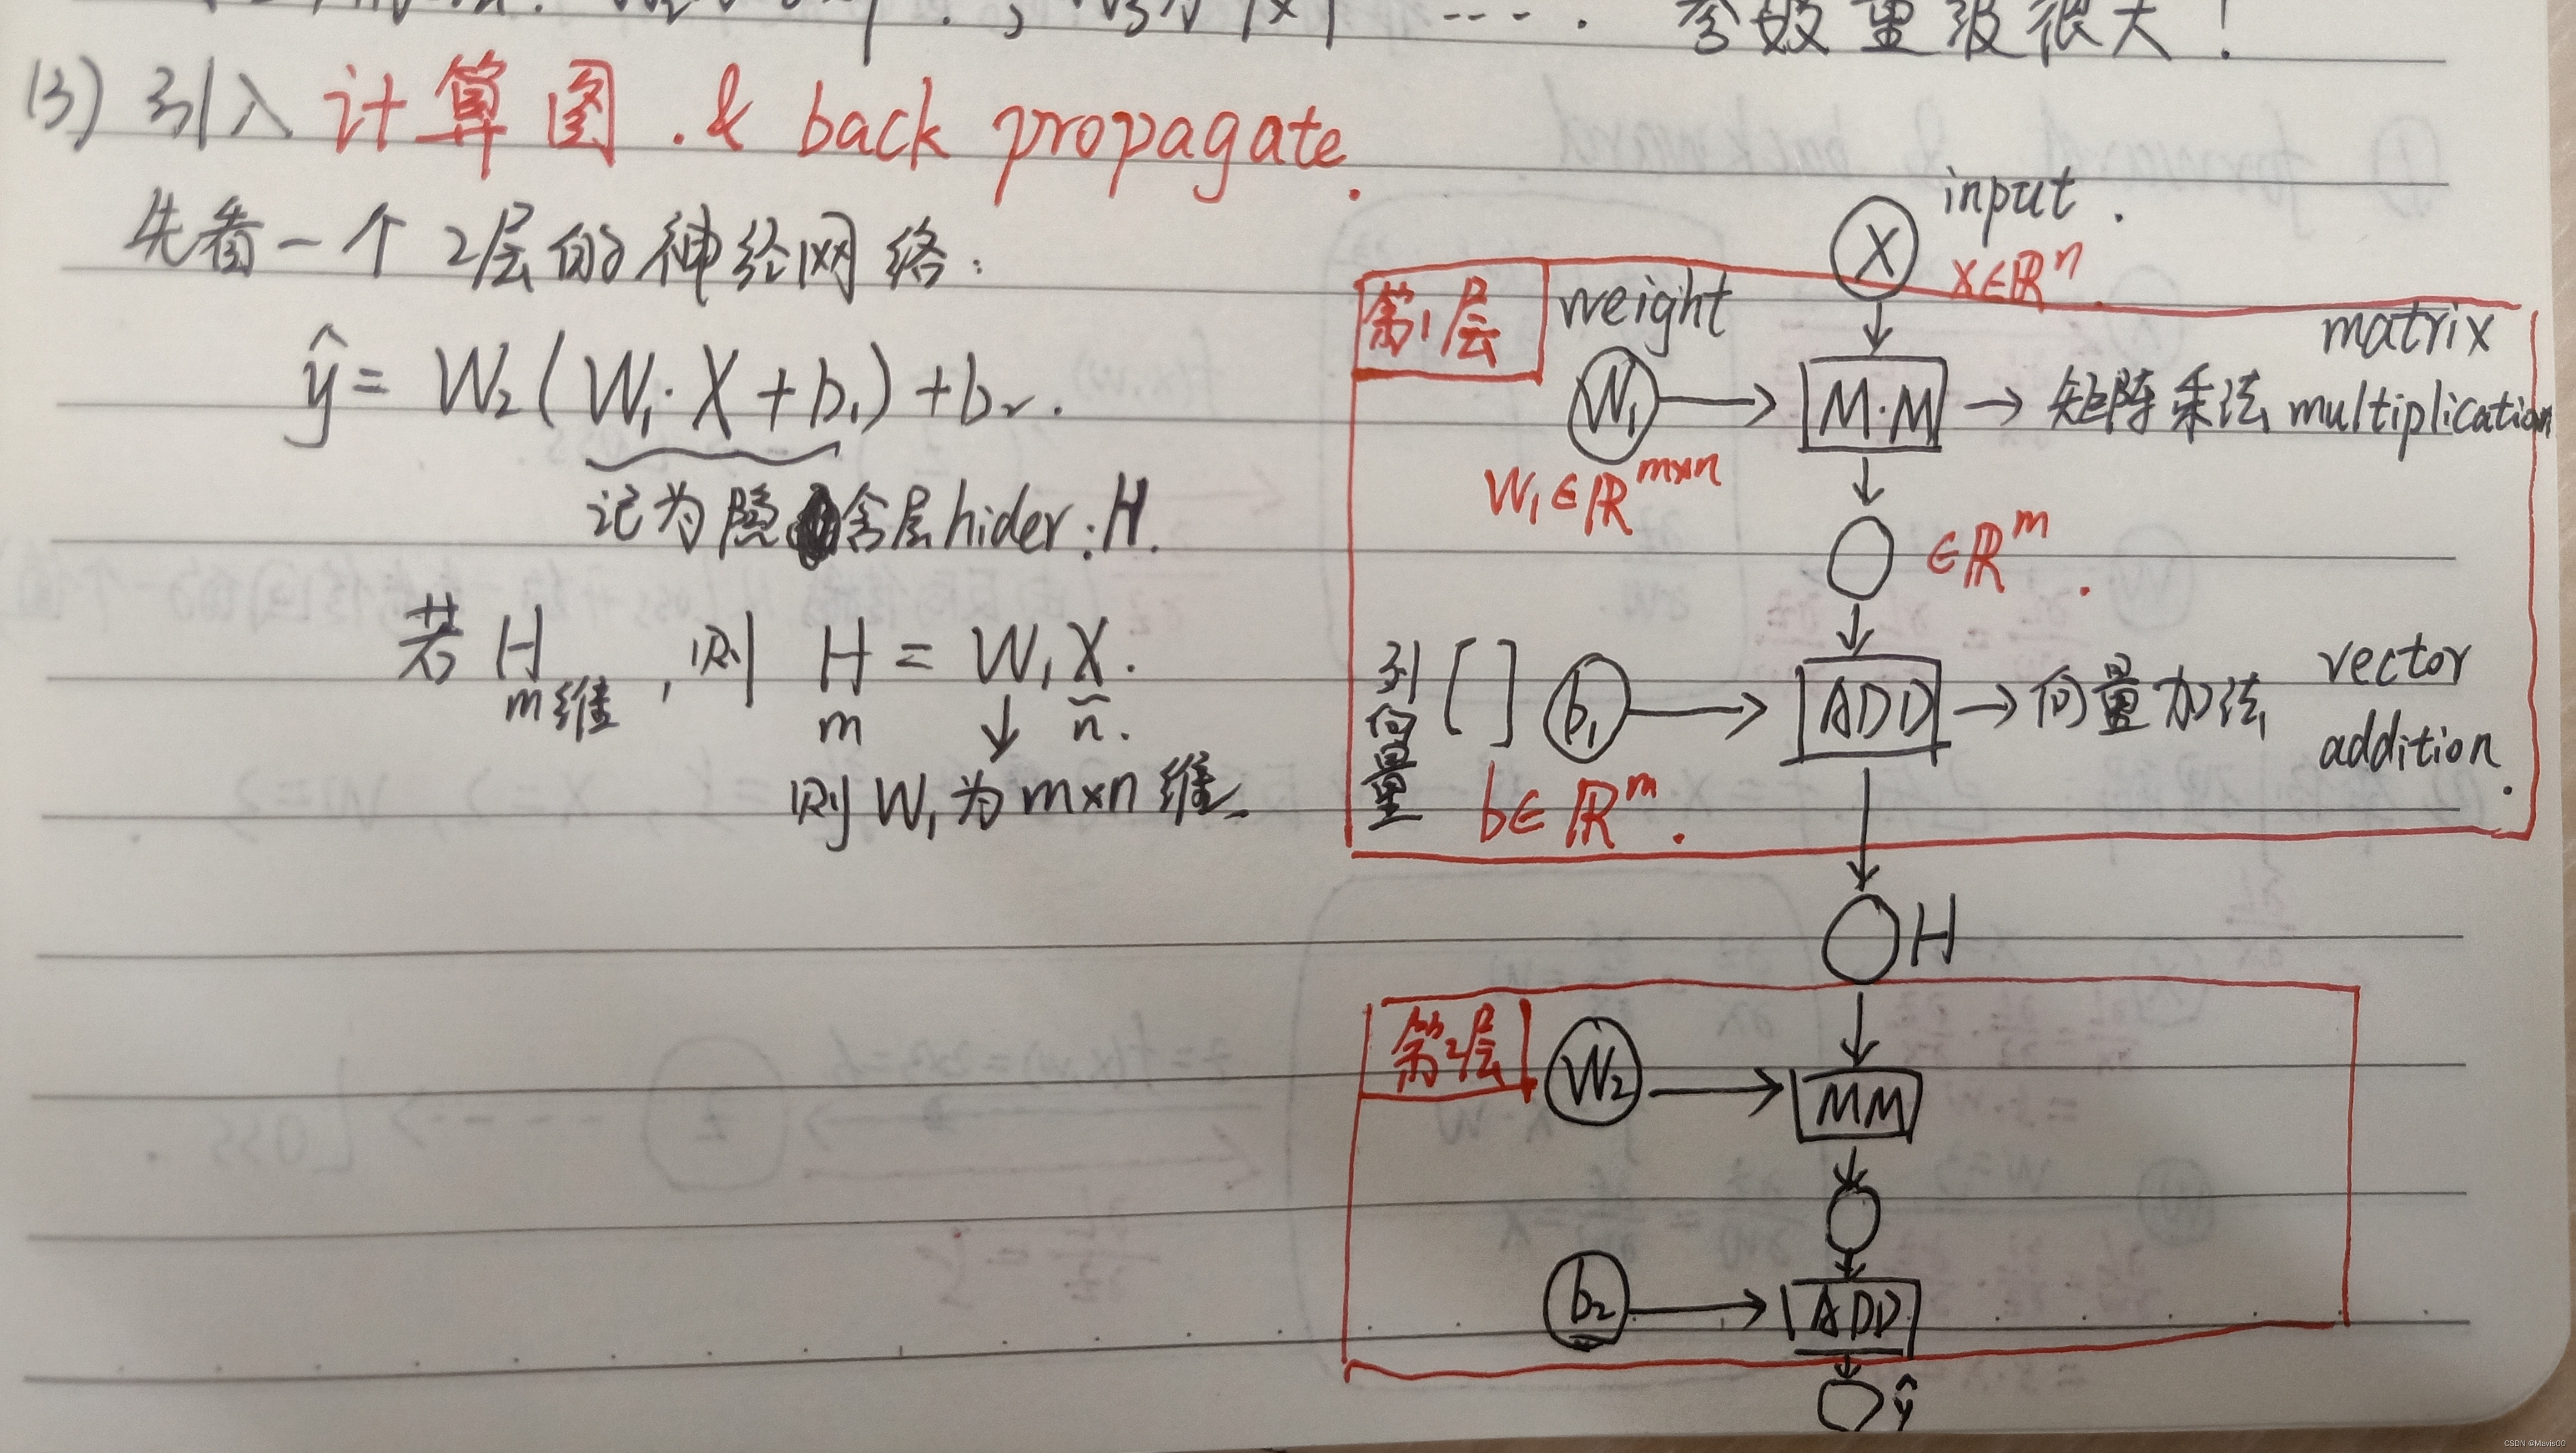 参数量级很大!
(3) 引入 计算图 . & back propagate.
先看一个 2层的神经网络:
ŷ = W₂(W₁·X+b₁)+b₂.
记为隐含层hider:H.
若 H ,则 H = W₁X.
m维 m n.
则W₁为m×n维
input.
X
X∈ℝⁿ.
第1层
weight
matrix
W₁ M·M 矩阵乘法 multiplication
W₁∈ℝᵐˣⁿ
∈ℝᵐ.
列向量 [ ] b₁ ADD 向量加法 vector
addition.
b∈ℝᵐ.
H
第2层
W₂ MM
b₂ ADD
ŷ
CSDN @Mavis00